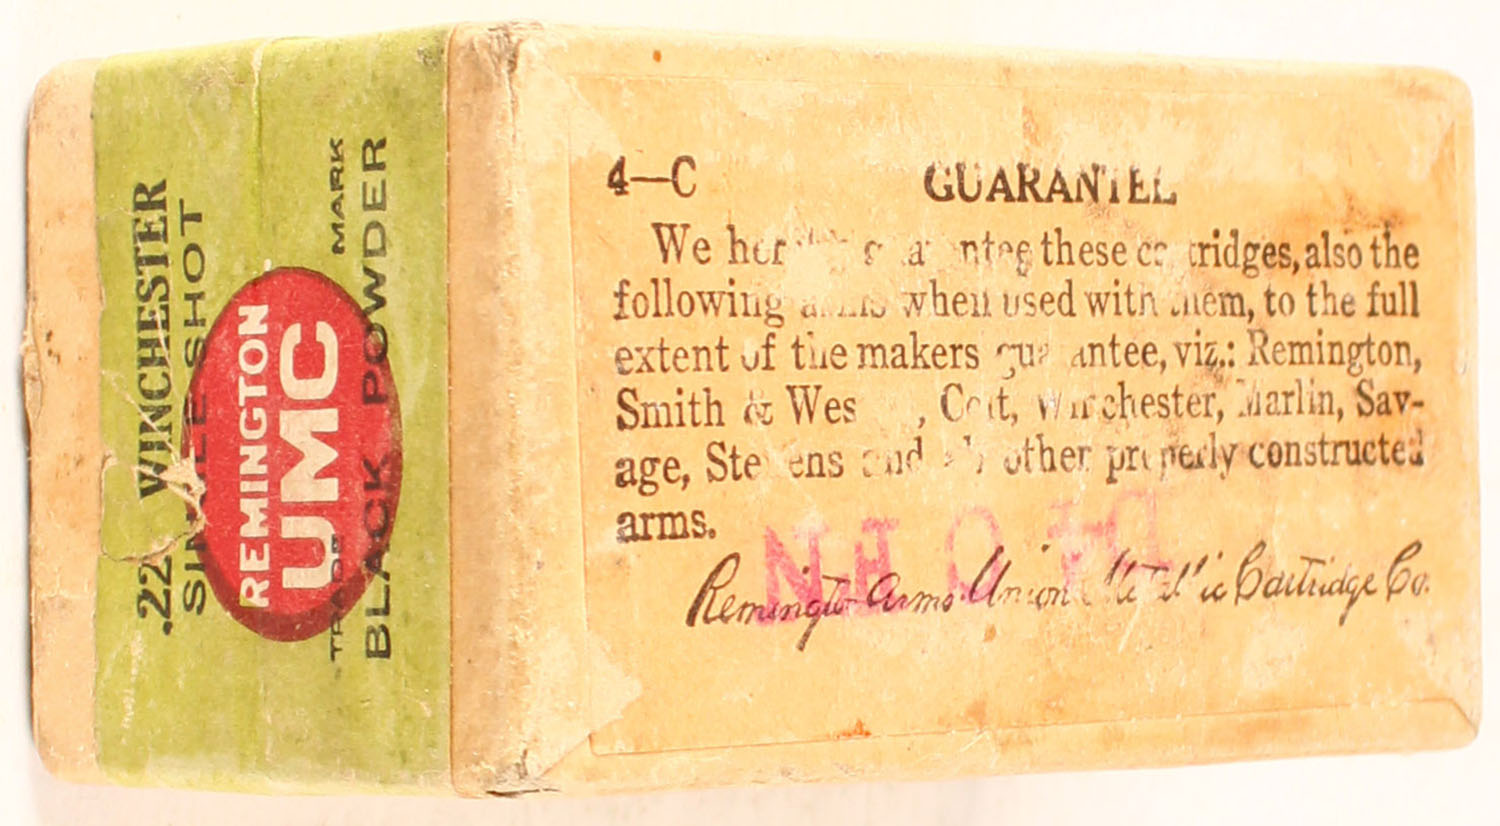 .22 WINCHESTER
SINGLE SHOT
REMINGTON
UMC
TRADE MARK
BLACK POWDER
4—C GUARANTEE
We these cartridges, also the
following arms when used with them, to the full
extent of the makers guarantee, viz.: Remington,
Smith & Wes , Colt, Winchester, Marlin, Sav-
age, Stevens and other properly constructed
arms.
Remington Arms Union Metallic Cartridge Co.